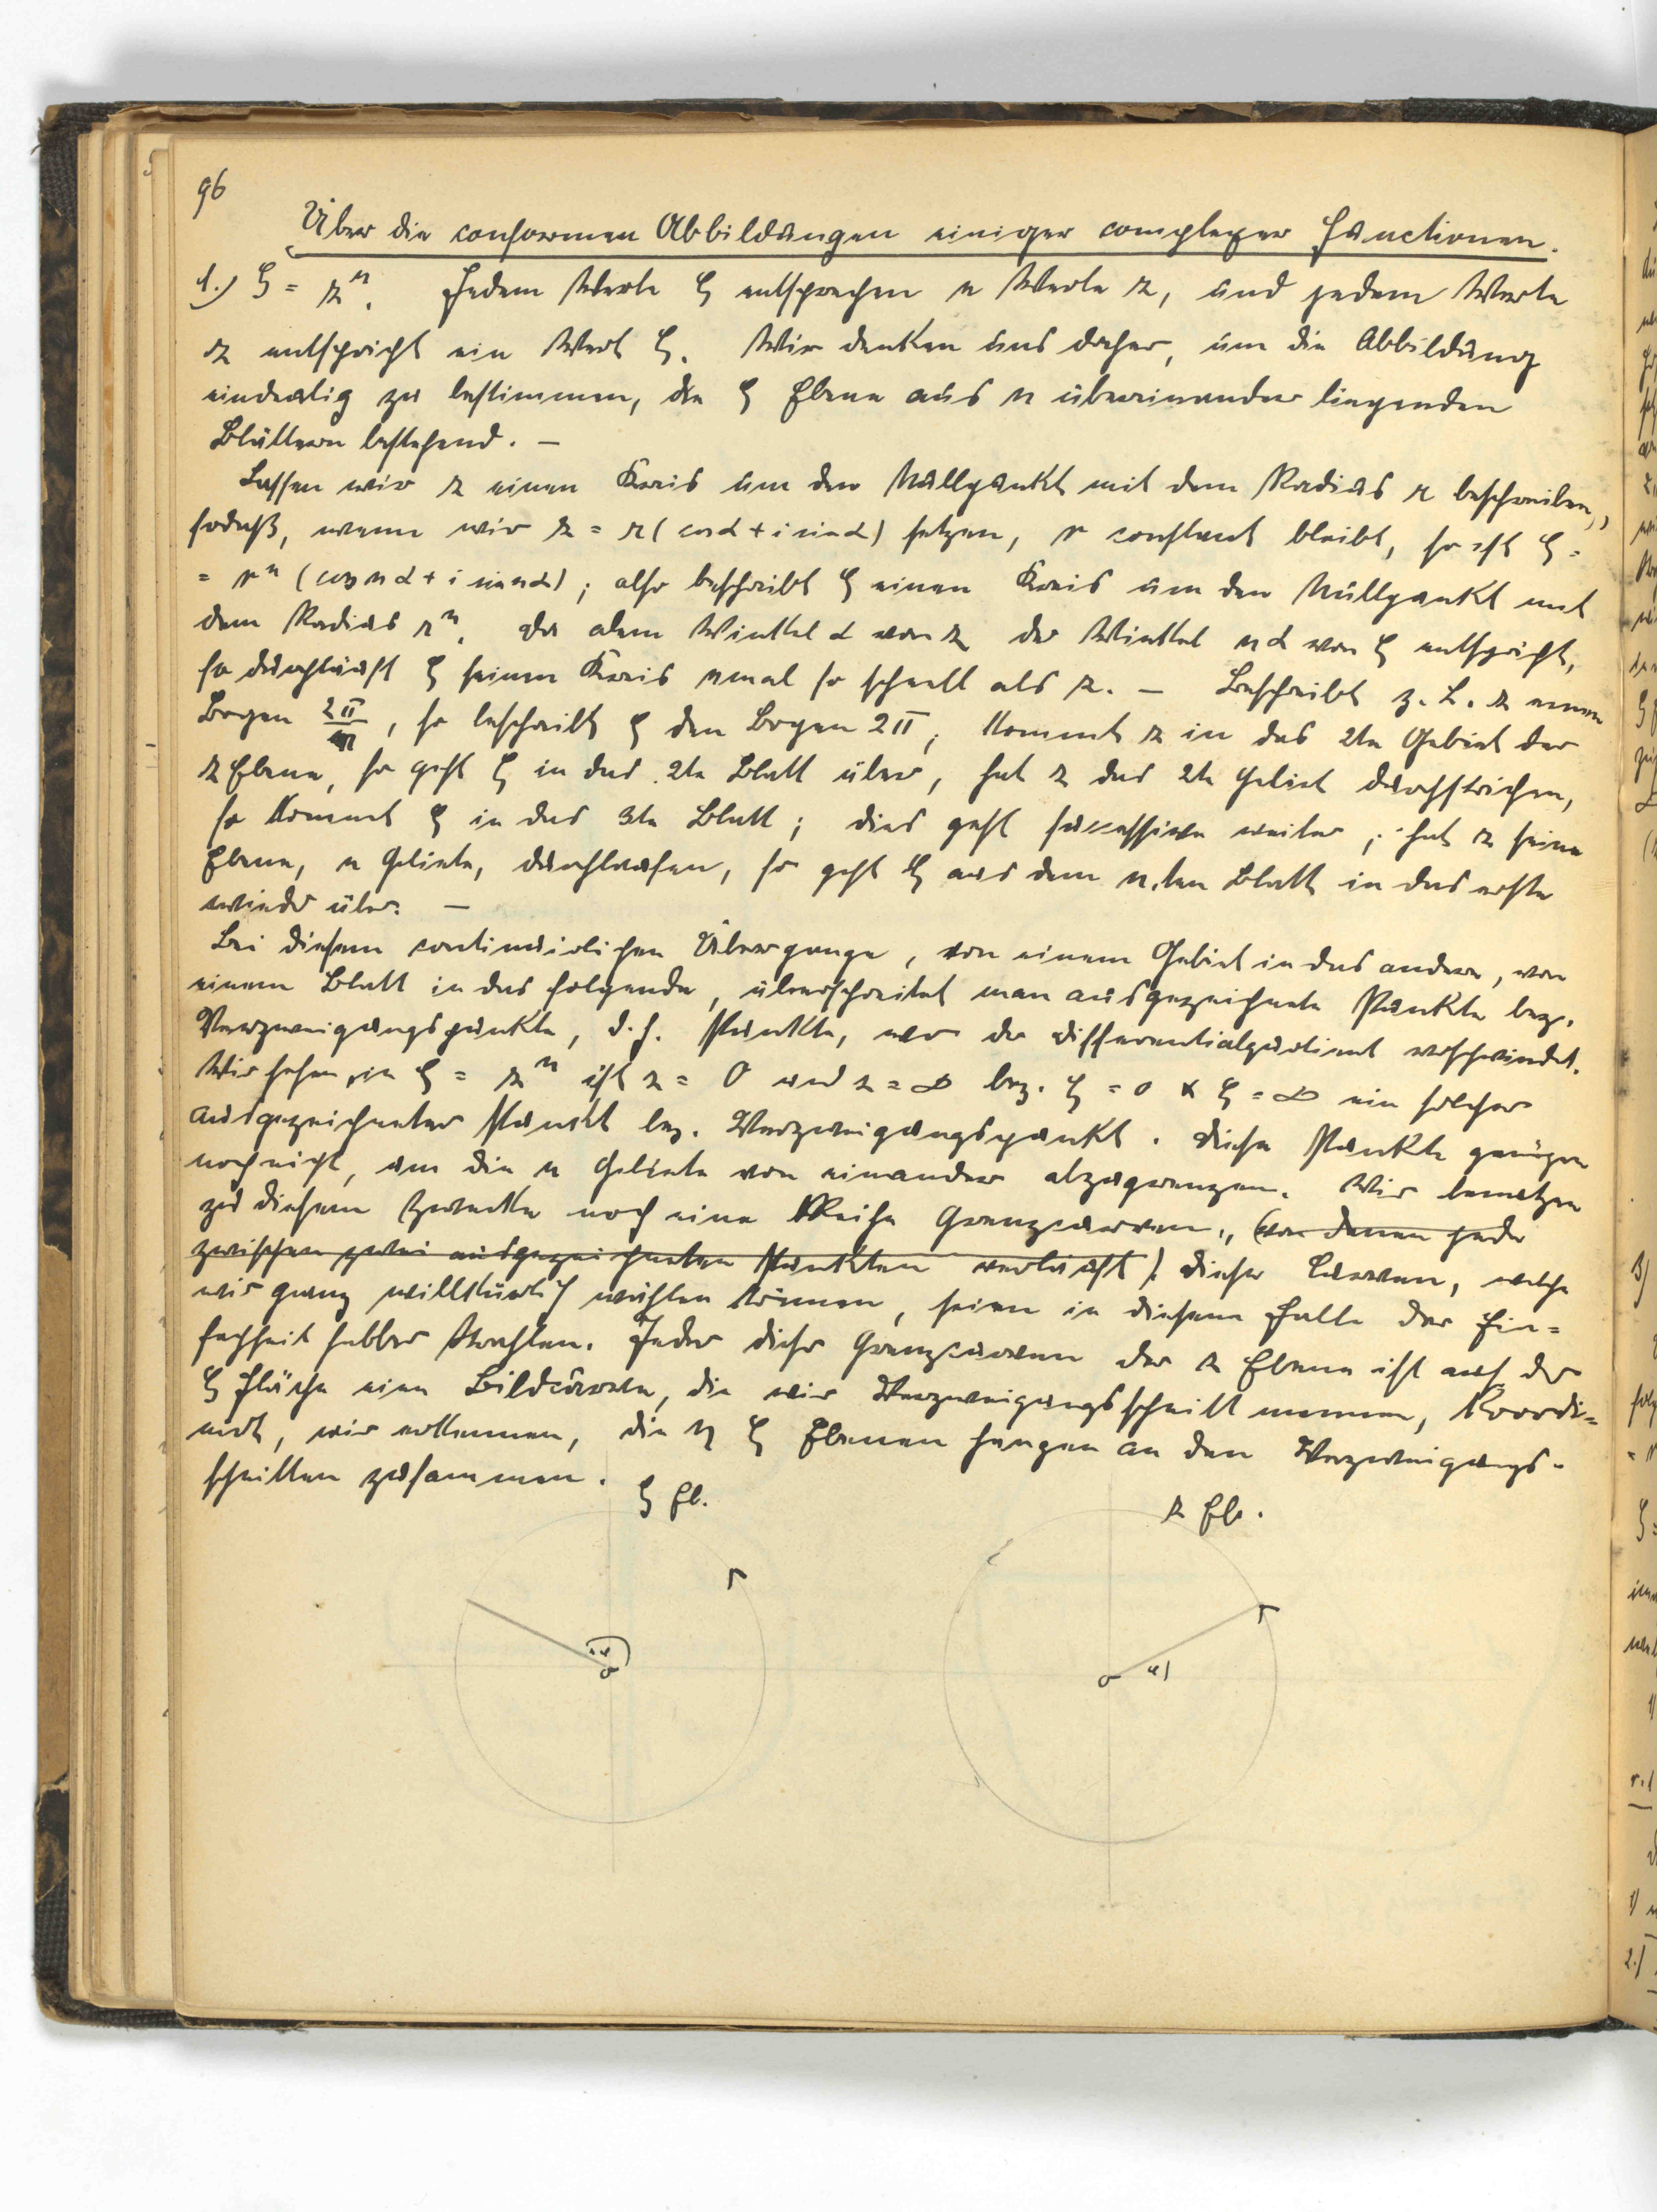 96
Über die conformen Abbildungen einiger complexer Functionen.
1.) ζ = z^n. Jedem Werte ζ entsprechen n Werte z, und jedem Werte
z entspricht ein Wert ζ. Wir denken uns daher, um die Abbildung
eindeutig zu bestimmen, die ζ Ebene aus n übereinander liegenden
Blättern bestehend. —
Lassen wir z einen Kreis um den Nullpunkt mit dem Radius r beschreiben,
sodaß, wenn wir z = r (cos α + i sin α) setzen, r constant bleibt, so ist ζ =
= r^n (cos n α + i sin n α); also beschreibt ζ einen Kreis um den Nullpunkt mit
dem Radius r^n. Da dem Winkel α von z der Winkel n α von ζ entspricht,
so durchläuft ζ seinen Kreis nmal so schnell als z. — Beschreibt z. B. z einen
Bogen 2π/n, so beschreibt ζ den Bogen 2π; kommt z in das 2te Gebiet der
z Ebene, so geht ζ in das 2te Blatt über, hat z das 2te Gebiet durchstrichen,
so kommt ζ in das 3te Blatt; dies geht successive weiter; hat z seine
Ebene, n Gebiete, durchlaufen, so geht ζ aus dem n.ten Blatt in das erste
wieder über. —
Bei diesem continuirlichen Übergange, von einem Gebiet in das andere, von
einem Blatt in das folgende, überschreitet man ausgezeichnete Punkte bez.
Verzweigungspunkte, d. h. Punkte, wo der Differentialquotient verschwindet.
Wir sehen, in ζ = z^n ist z = 0 und z = ∞ bez. ζ = 0 & ζ = ∞ ein solcher
ausgezeichneter Punkt bez. Verzweigungspunkt. Diese Punkte genügen
noch nicht, um die n Gebiete von einander abzugrenzen. Wir benutzen
zu diesem Zwecke noch eine Reihe Grenzcurven, (von denen jede
zwischen zwei ausgezeichneten Punkten verläuft). Diese Curven, welche
wir ganz willkürlich wählen können, seien in diesem Falle der Ein=
fachheit halber Strahlen. Jeder dieser Grenzcurven der z Ebene ist auf der
ζ Fläche eine Bildcurve, die wir Verzweigungsschnitt nennen, koordi=
nirt, wir erkennen, die n ζ Ebenen hängen an den Verzweigungs-
schnitten zusammen.
ζ Eb.
z Eb.